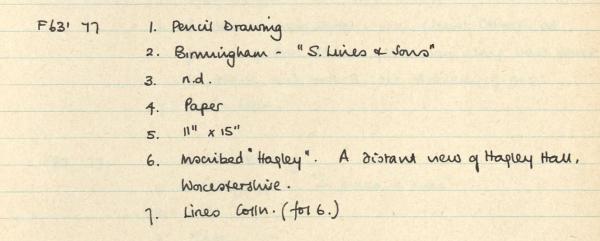 F63' 77 1. Pencil Drawing
2. Birmingham - "S. Lines & Sons"
3. n.d.
4. Paper
5. 11" x 15"
6. Inscribed "Hagley". A distant view of Hagley Hall,
Worcestershire.
7. Lines Colln. (fol 6.)